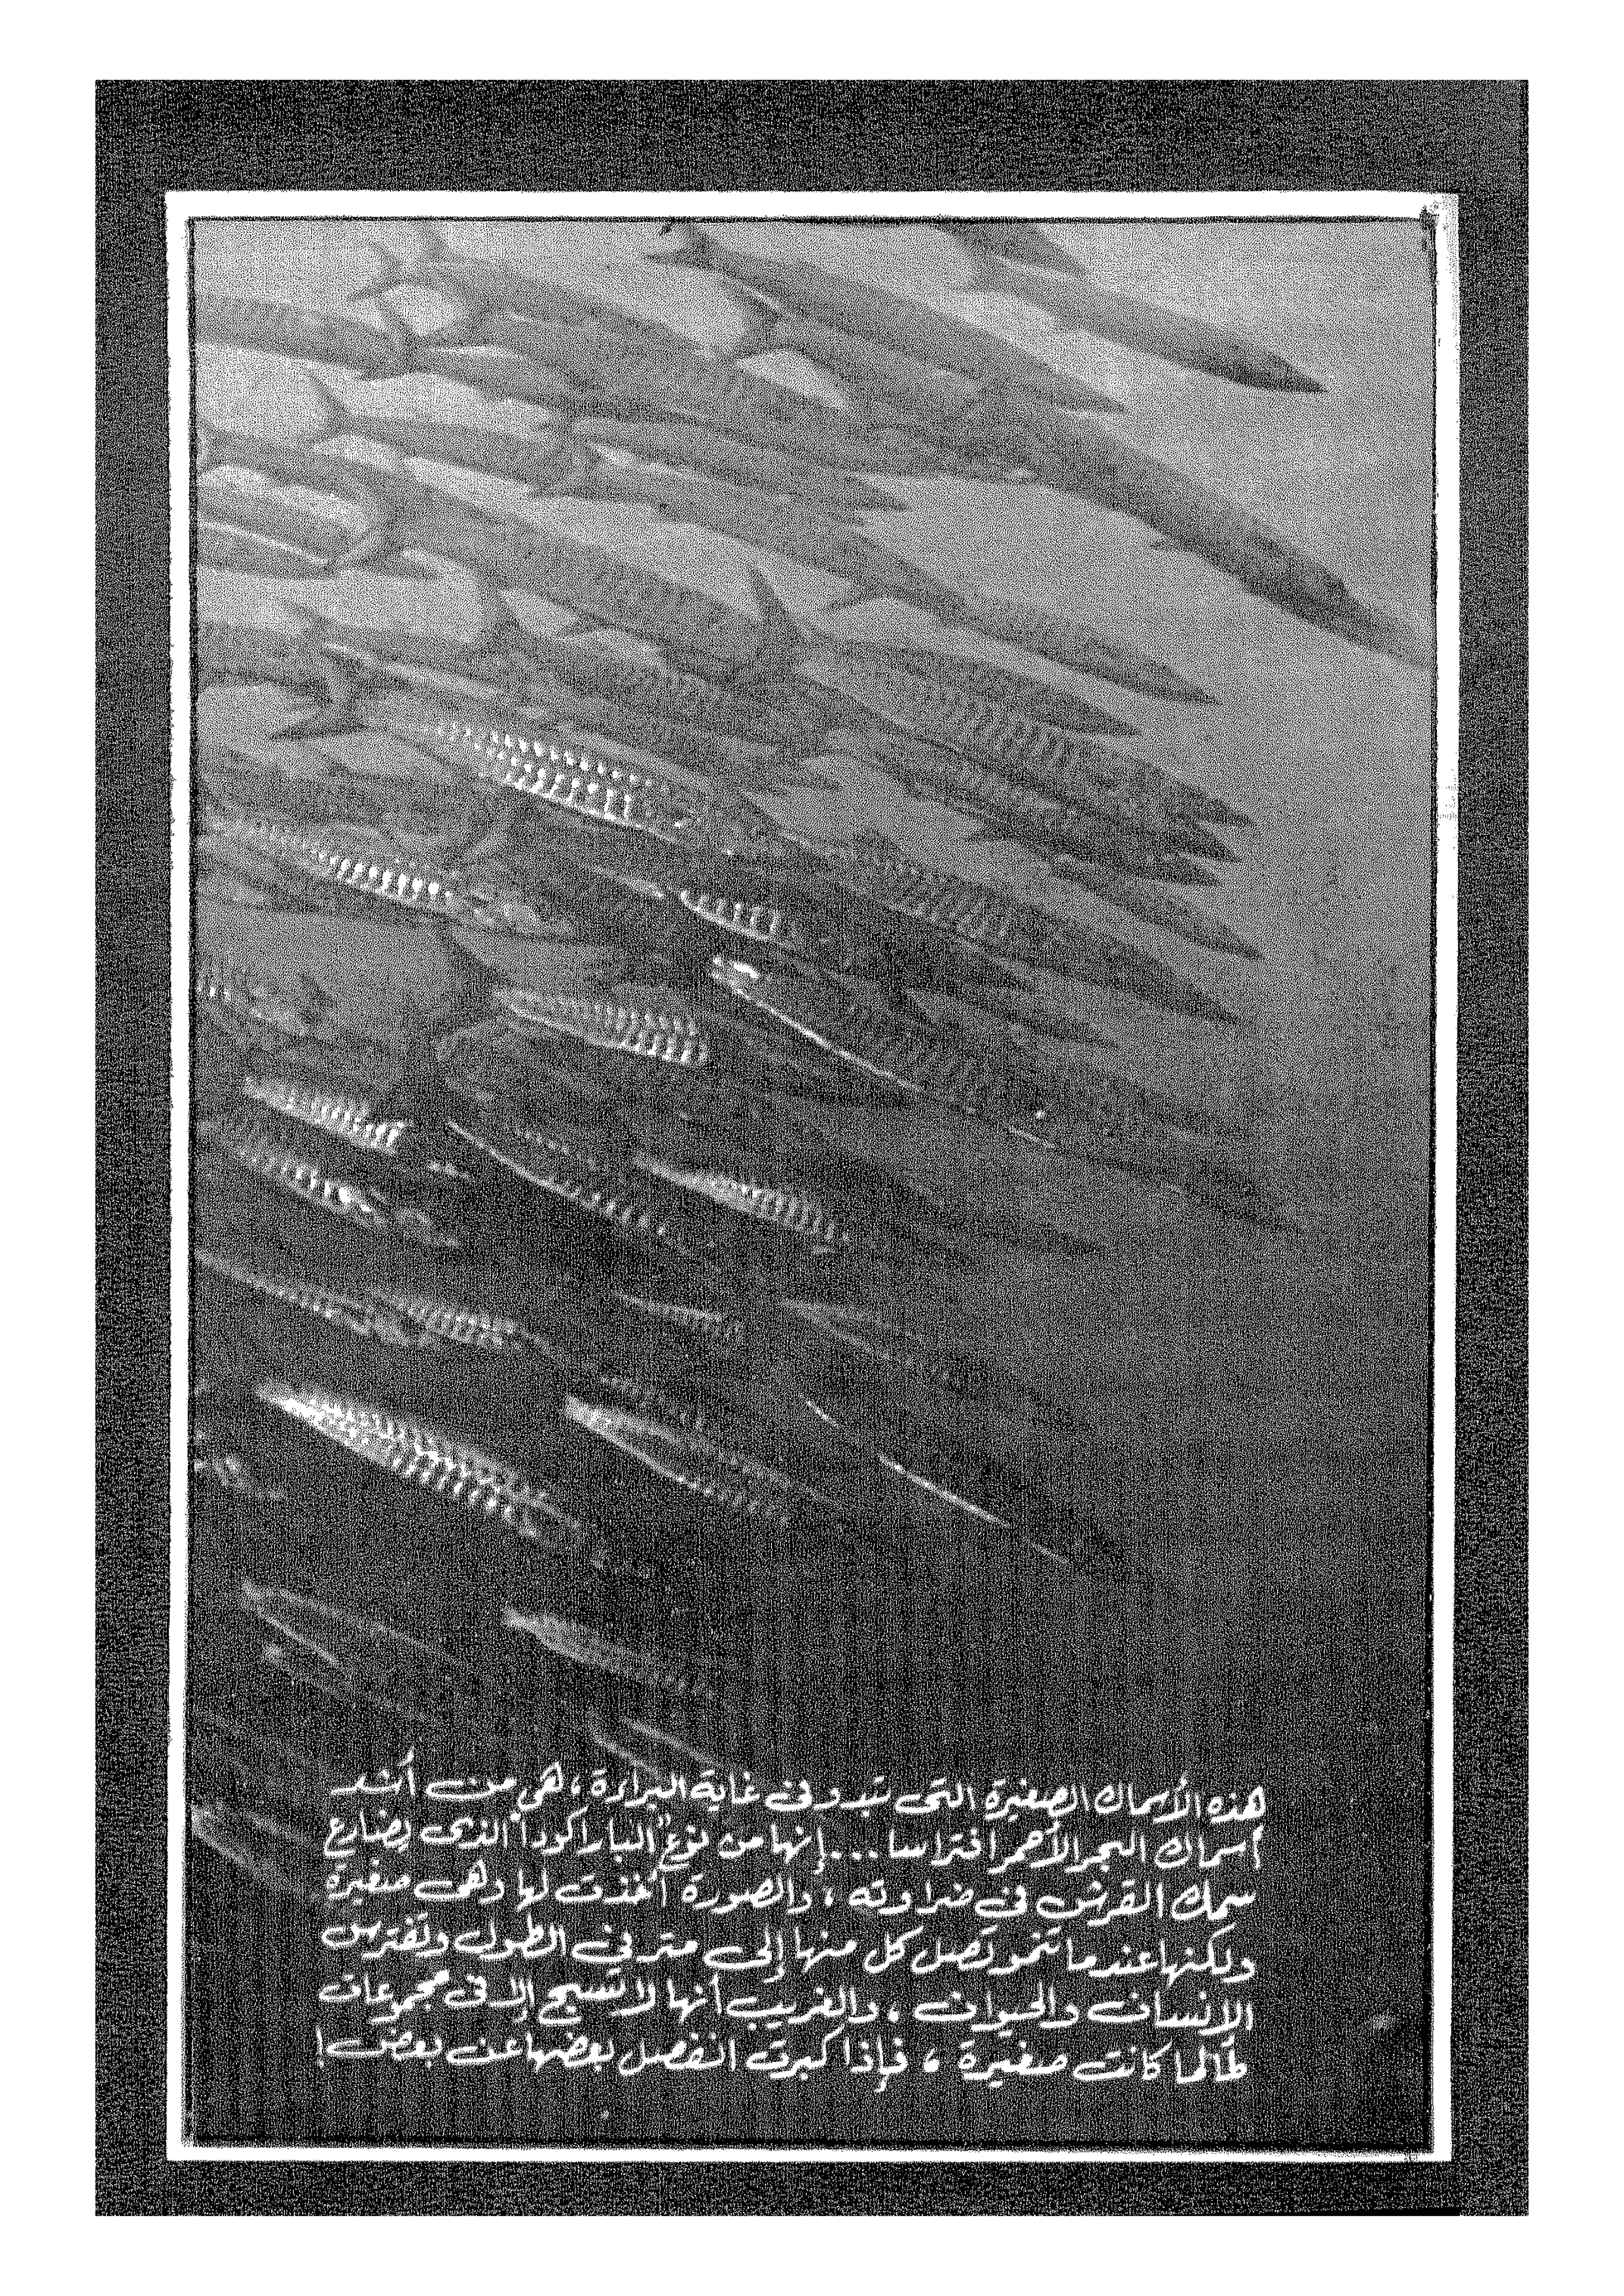 هذه الأسماك الصغيرة التى تبدو فى غاية البراءة ، هى من أشد
أسماك البحر الأحمر افتراسا ... إنها من نوع "الباراكودا" الذى يضارع
سمك القرش فى ضراوته ، والصورة أخذت لها وهى صغيرة
ولكنها عندما تنمو تصل كل منها إلى متر فى الطول وتفترس
الانسان والحيوان ، والغريب أنها لا تسبح إلا فى مجموعات
طالما كانت صغيرة ، فإذا كبرت انفصل بعضها عن بعض !